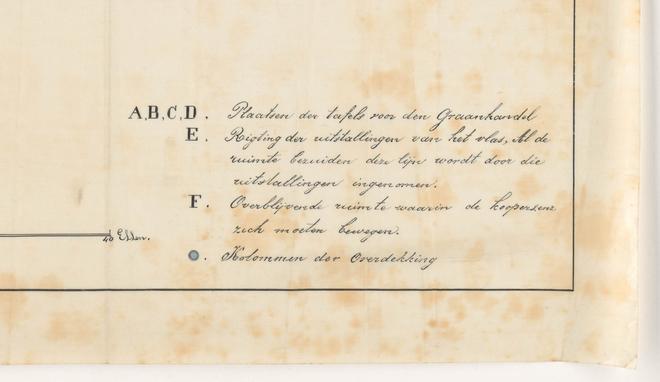 A,B,C,D. Plaatsen der tafels voor den Graanhandel
E. Rigting der uitstallingen van het vlas, Al de
ruimte bezuiden deze lijn wordt door die
uitstallingen ingenomen.
F. Overblijvende ruimte waarin de koopers enz
zich moeten bewegen.
40 Ellen.
. Kolommen der Overdekking